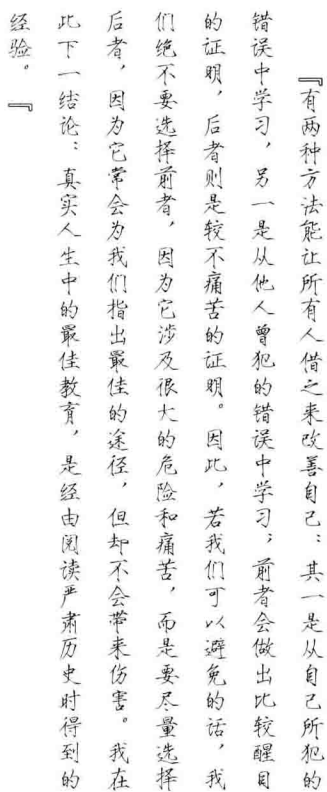 『有两种方法能让所有人借之来改善自己：其一是从自己所犯的
错误中学习，另一是从他人曾犯的错误中学习；前者会做出比较醒目
的证明，后者则是较不痛苦的证明。因此，若我们可以避免的话，我
们绝不要选择前者，因为它涉及很大的危险和痛苦，而是要尽量选择
后者，因为它常会为我们指出最佳的途径，但却不会带来伤害。我在
此下一结论：真实人生中的最佳教育，是经由阅读严肃历史时得到的
经验。『